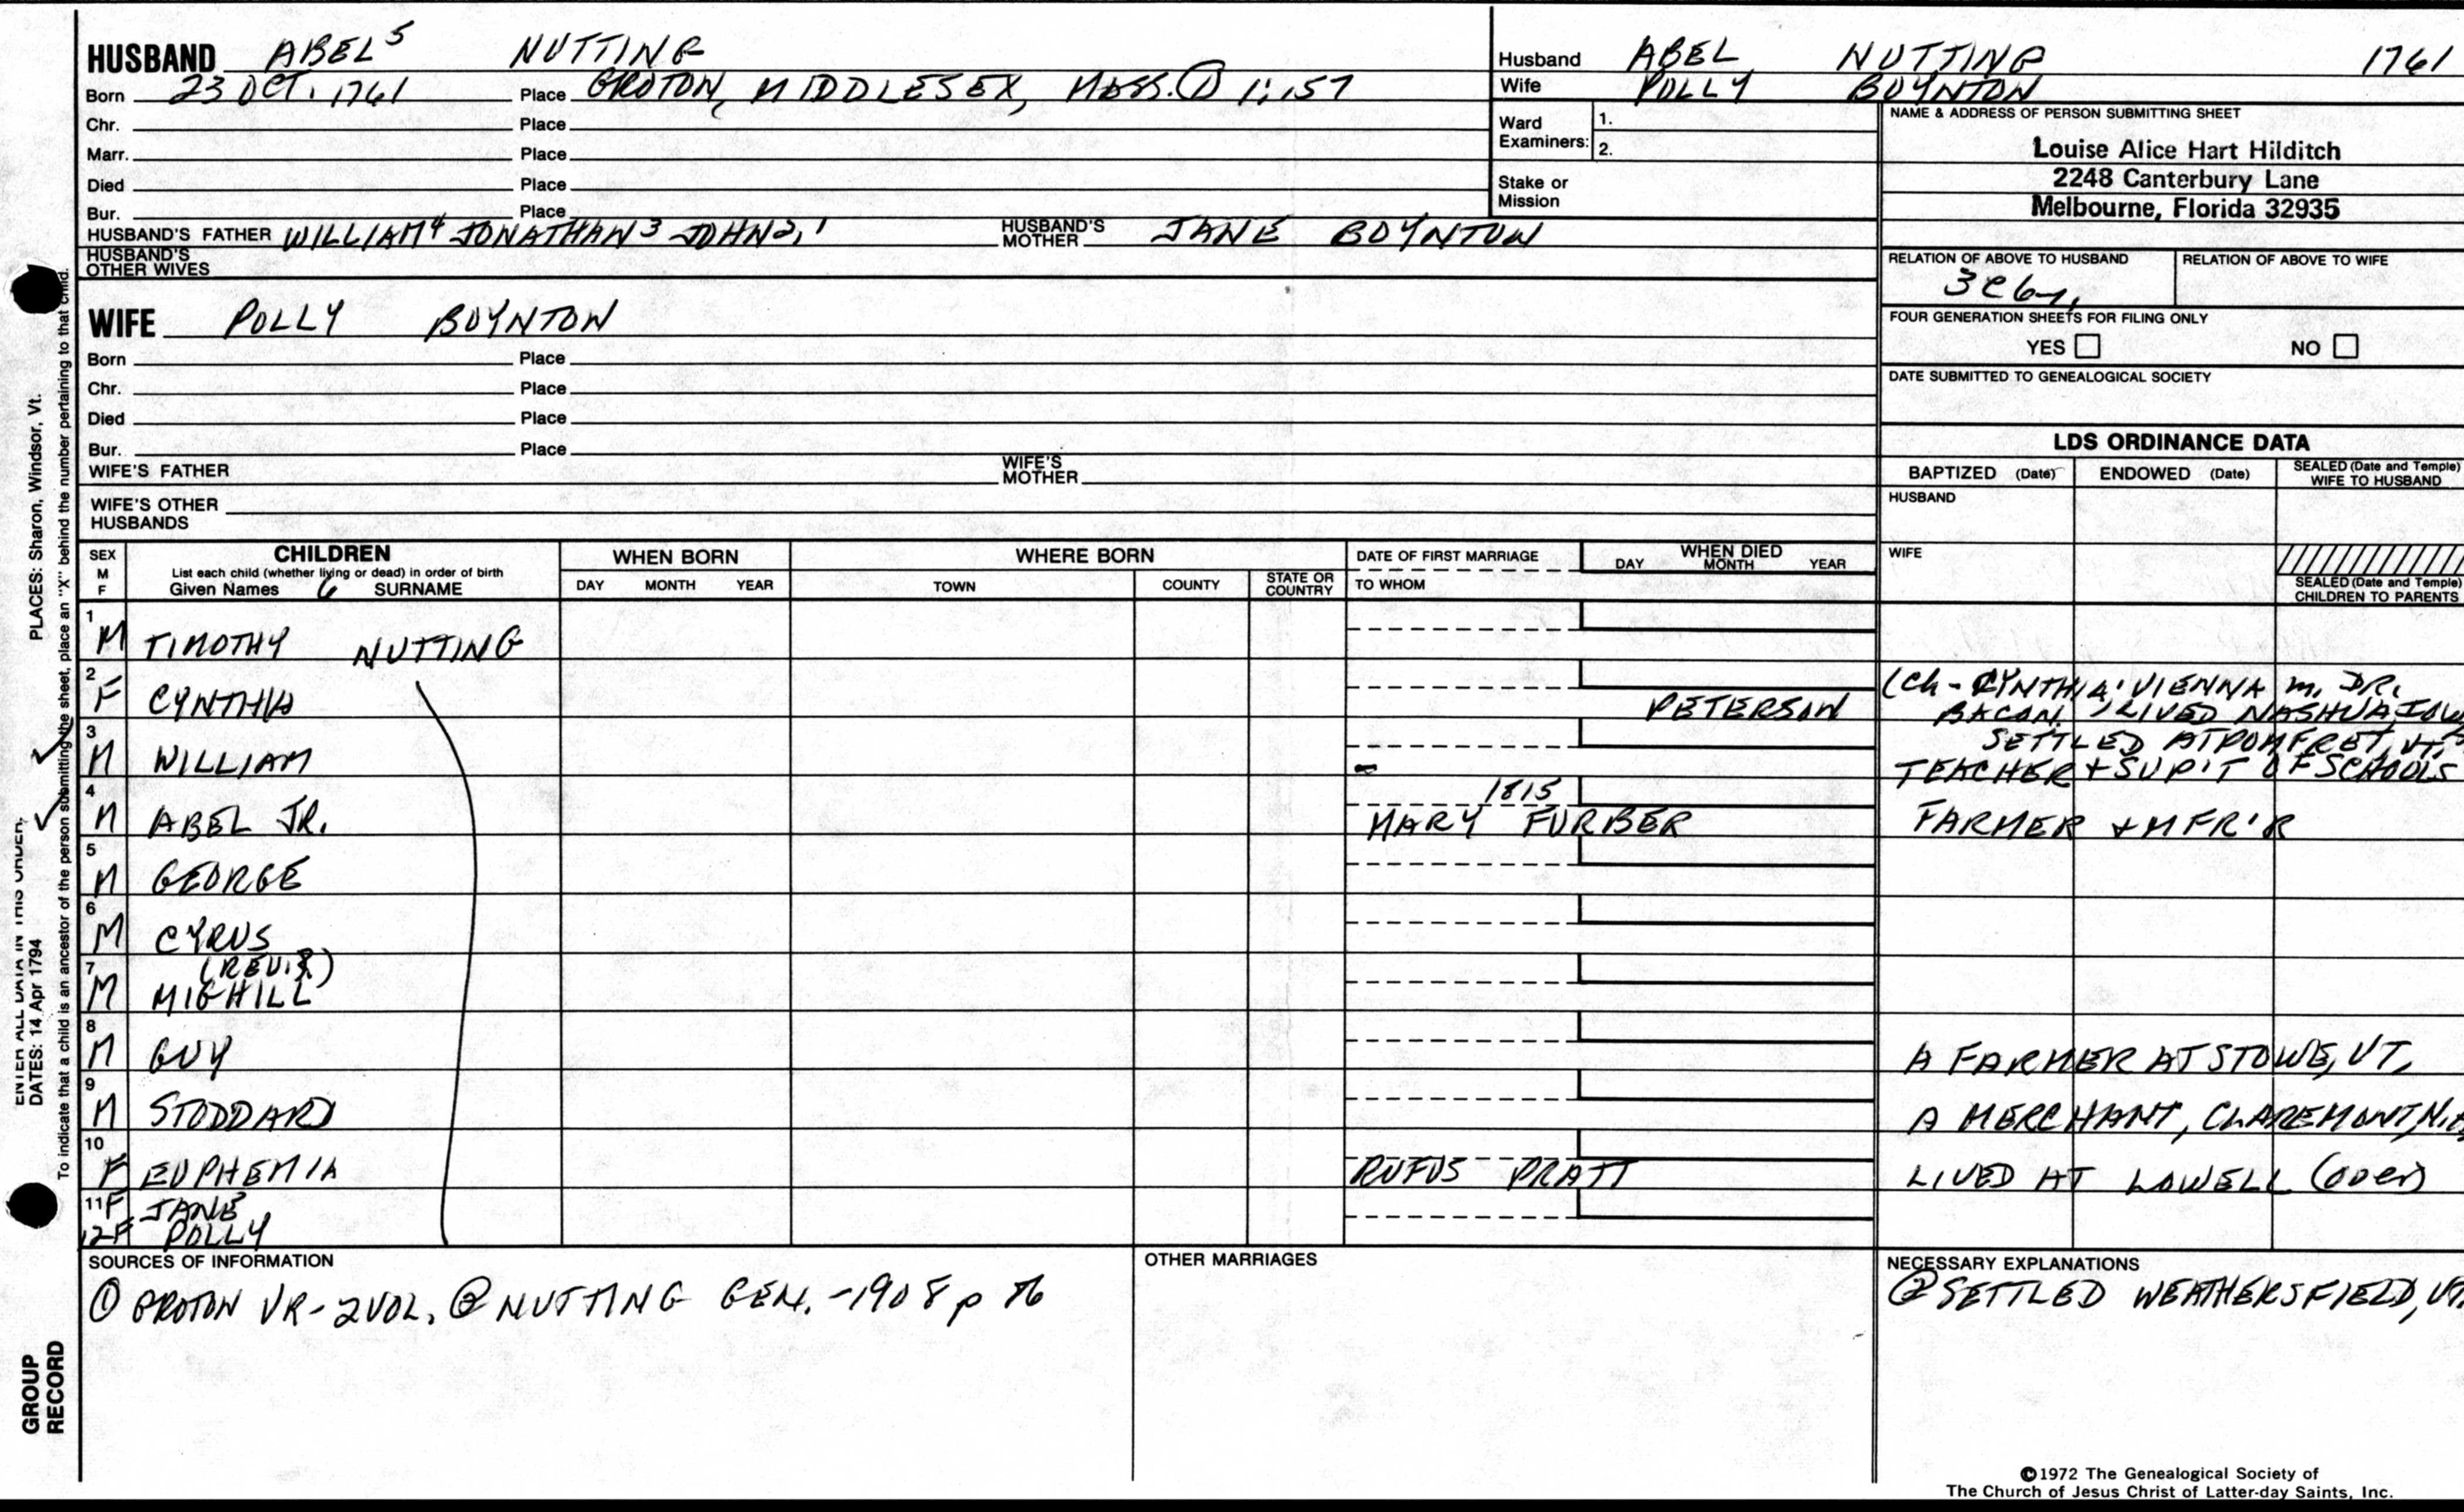 HUSBAND ABEL⁵ NUTTING
Born 23 OCT. 1761 Place GROTON, MIDDLESEX, MASS. ① 1:157
Chr. Place
Marr. Place
Died Place
Bur. Place
HUSBAND'S FATHER WILLIAM⁴ JONATHAN³ JOHN²,¹ HUSBAND'S MOTHER JANE BOYNTON
HUSBAND'S OTHER WIVES
WIFE POLLY BOYNTON
Born Place
Chr. Place
Died Place
Bur. Place
WIFE'S FATHER WIFE'S MOTHER
WIFE'S OTHER HUSBANDS
Husband ABEL NUTTING 1761
Wife POLLY BOYNTON
Ward Examiners: 1.
2.
Stake or Mission
NAME & ADDRESS OF PERSON SUBMITTING SHEET
Louise Alice Hart Hilditch
2248 Canterbury Lane
Melbourne, Florida 32935
RELATION OF ABOVE TO HUSBAND RELATION OF ABOVE TO WIFE
FOUR GENERATION SHEETS FOR FILING ONLY
YES NO
DATE SUBMITTED TO GENEALOGICAL SOCIETY
LDS ORDINANCE DATA
BAPTIZED (Date) ENDOWED (Date) SEALED (Date and Temple) WIFE TO HUSBAND
HUSBAND
WIFE
SEALED (Date and Temple) CHILDREN TO PARENTS
SEX M F
CHILDREN
List each child (whether living or dead) in order of birth
Given Names 6 SURNAME
WHEN BORN
DAY MONTH YEAR
WHERE BORN
TOWN COUNTY STATE OR COUNTRY
DATE OF FIRST MARRIAGE
TO WHOM
WHEN DIED
DAY MONTH YEAR
1 M TIMOTHY NUTTING
2 F CYNTHIA PETERSON (Ch - CYNTHIA, VIENNA m. DR.
BACON, LIVED NASHUA,
3 M WILLIAM SETTLED AT POMFRET, VT.
TEACHER + SUP'T OF SCHOOLS
4 M ABEL JR. 1815
MARY FURBER FARMER + MFR'R
5 M GEORGE
6 M CYRUS
7 M MIGHILL
8 M GUY A FARMER AT STOWE, VT.
9 M STODDARD A MERCHANT, CLAREMONT,
10 F EUPHEMIA RUFUS PRATT LIVED AT LOWELL (over)
11 F JANE
12 F POLLY
SOURCES OF INFORMATION
① GROTON VR - 2 VOL. ② NUTTING GEN. - 1908 p
OTHER MARRIAGES
NECESSARY EXPLANATIONS
② SETTLED WEATHERSFIELD,
©1972 The Genealogical Society of
The Church of Jesus Christ of Latter-day Saints, Inc.
ENTER ALL DATA IN THIS ORDER:
DATES: 14 Apr 1794 PLACES: Sharon, Windsor, Vt.
To indicate that a child is an ancestor of the person submitting the sheet, place an "X" behind the number pertaining to that child.
GROUP
RECORD